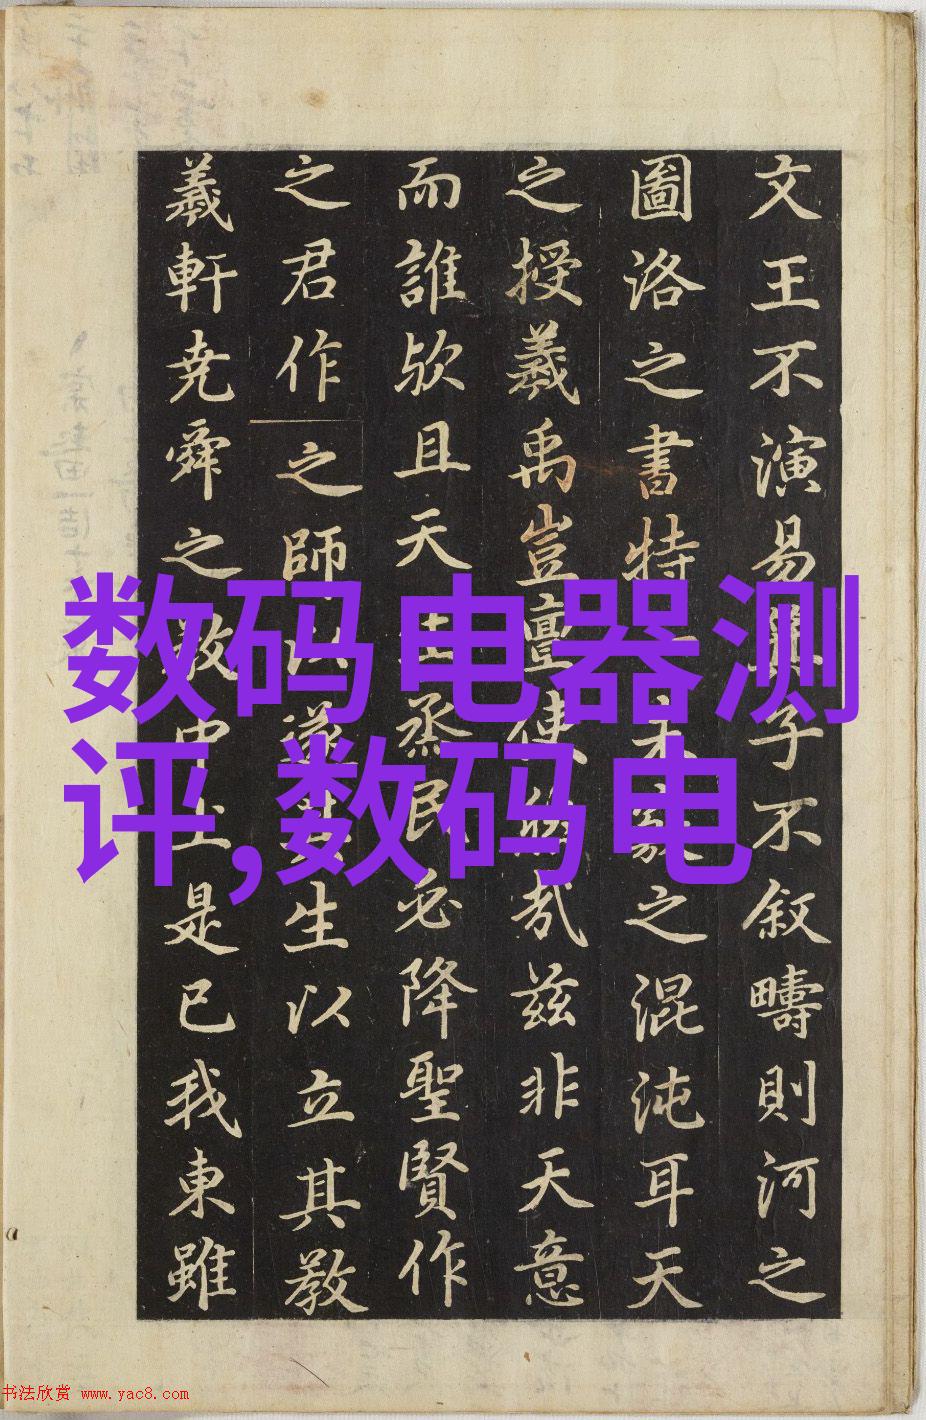 文王不演易子不叙疇則河之
圖洛之書特未之混沌耳天
之授羲禹豈亶使哉兹非天意
而誰欤且天生烝民必降聖賢作
之君作之師以生以立其教
羲軒尭舜之中土是已我東雖
数码电器测
评,数码电
书法欣赏 www.yac8.com